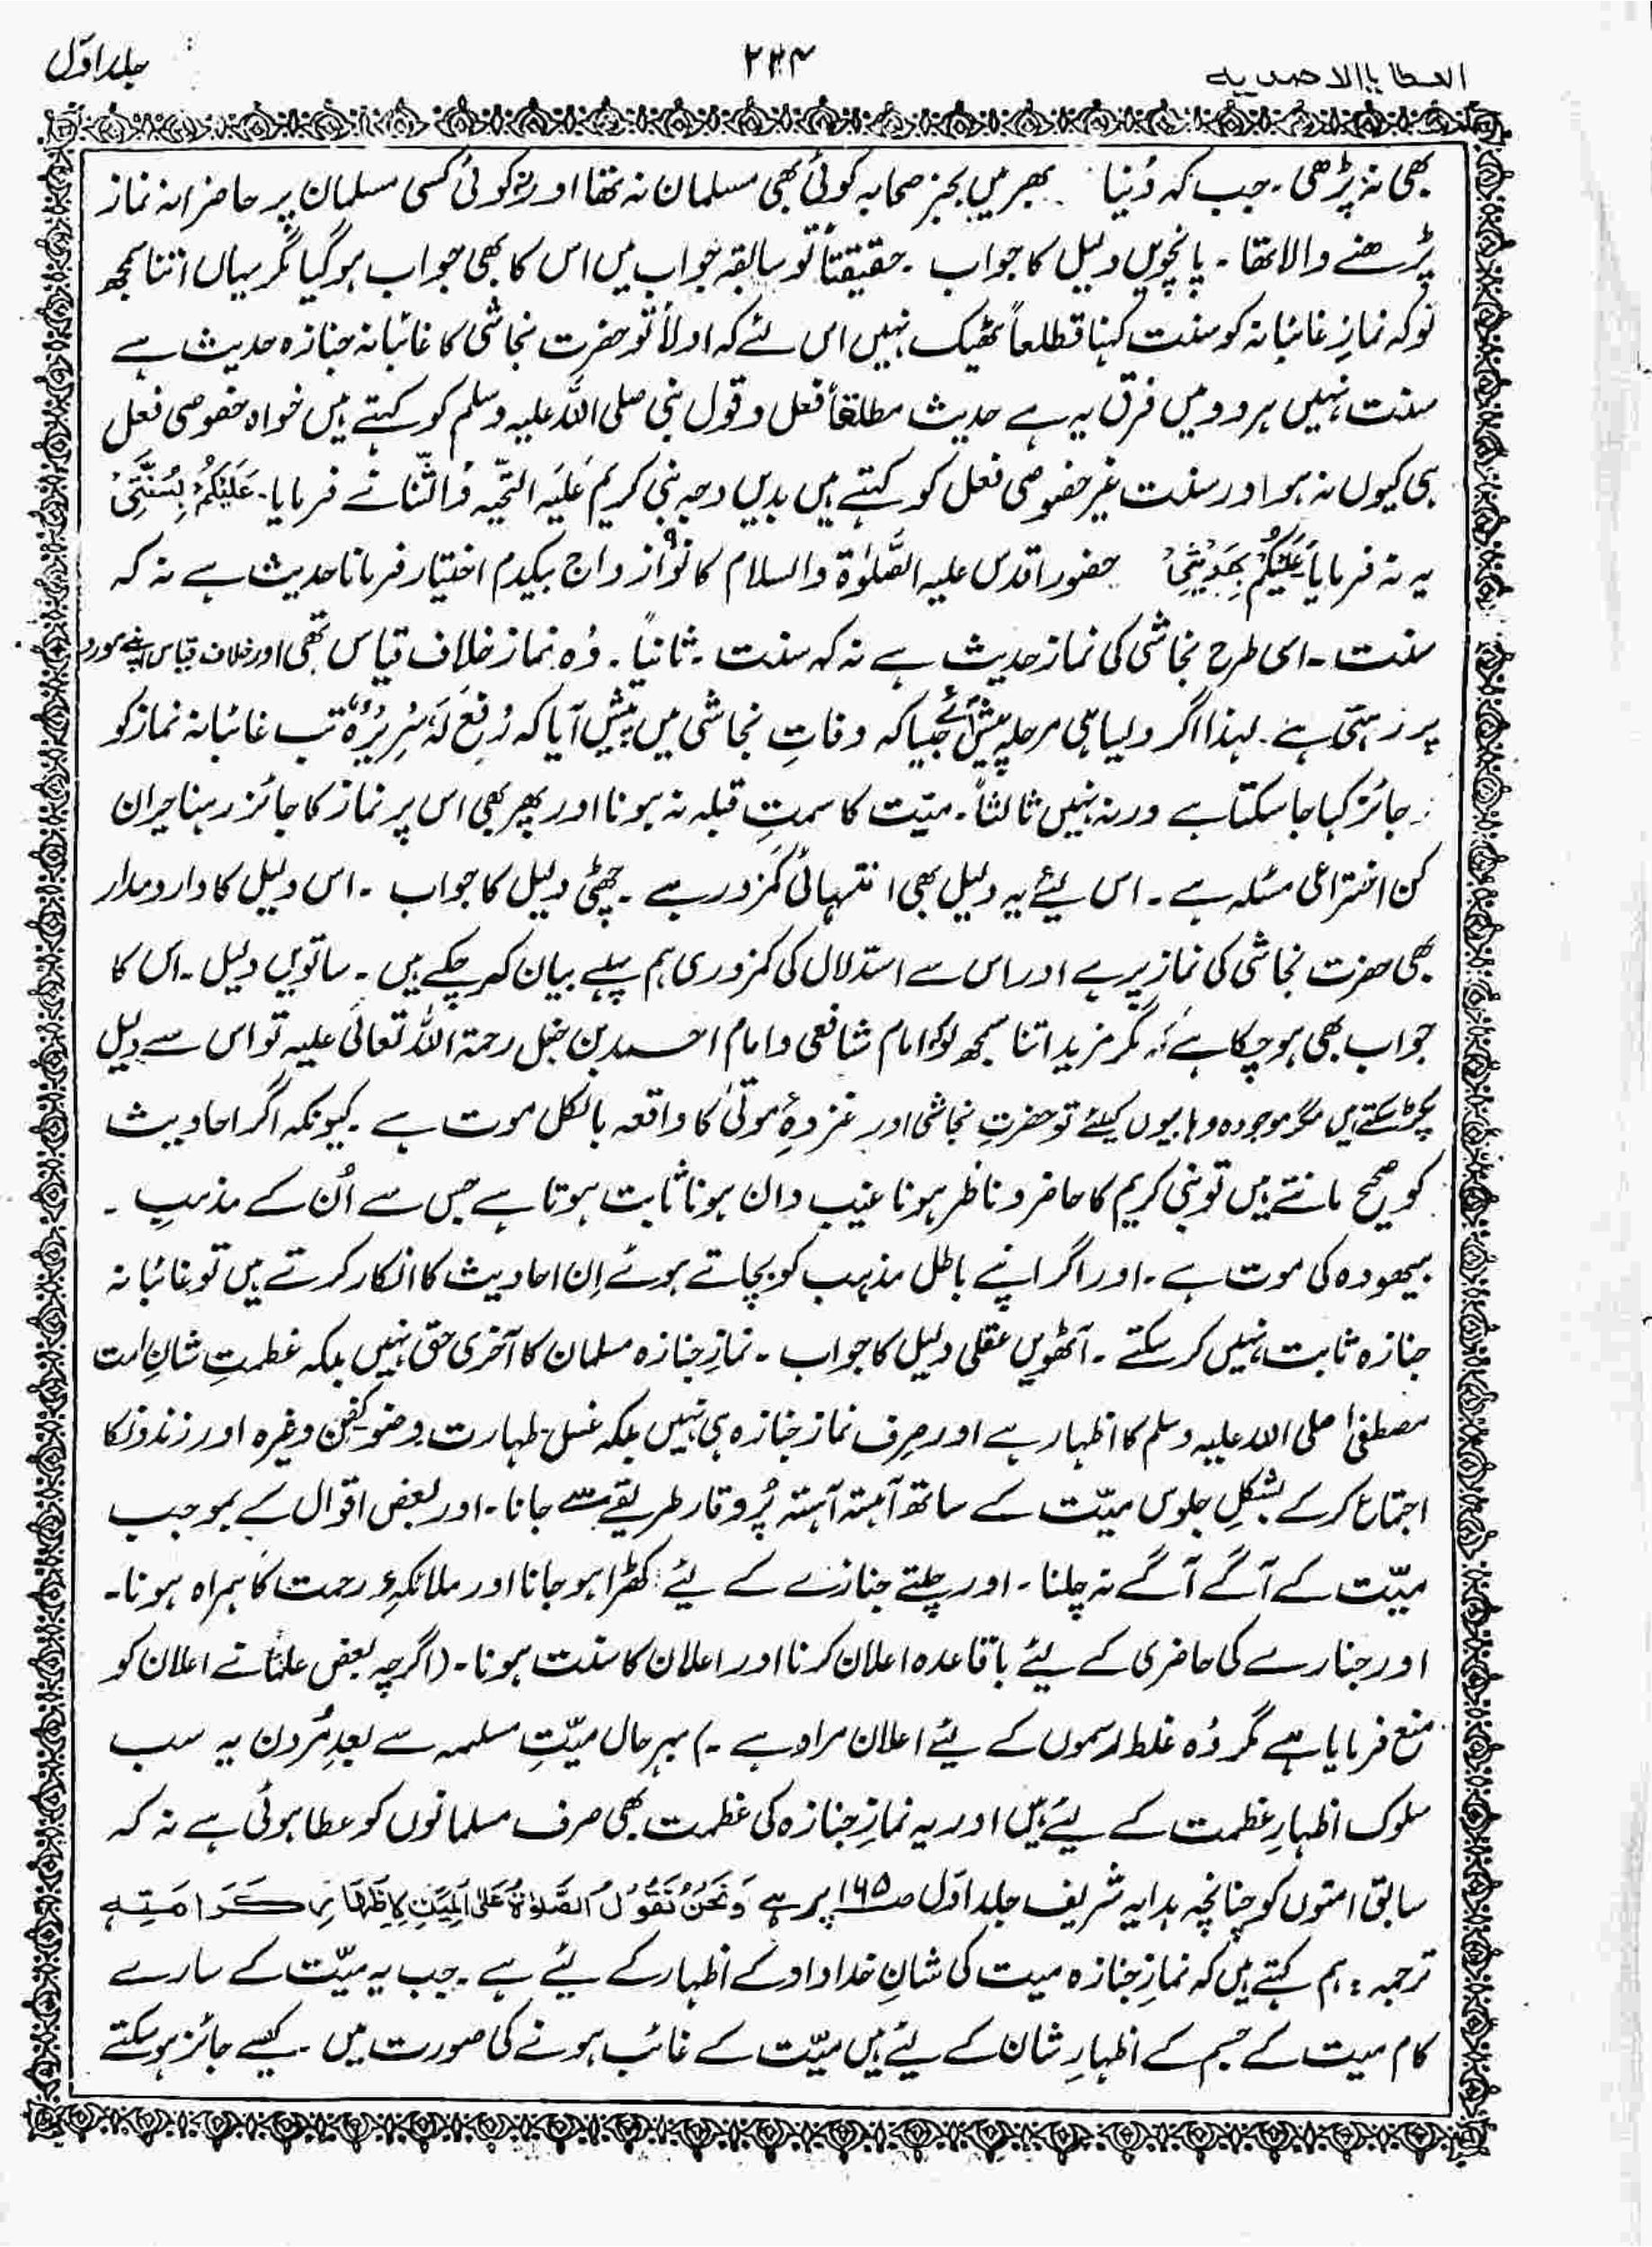 العطایا الاحمدیہ ۲۳۴ جلد اوّل
بھی نہ پڑھی۔ جب کہ دُنیا بھر میں بجز صحابہ کوئی بھی مسلمان نہ تھا اور نہ کوئی کسی مسلمان پر حاضرانہ نماز
پڑھنے والا تھا۔ پانچویں دلیل کا جواب۔ حقیقتاً تو سابقہ جواب میں اس کا بھی جواب ہو گیا مگر یہاں اتنا سمجھ
لو کہ نمازِ غائبانہ کو سنت کہنا قطعاً ٹھیک نہیں اس لئے کہ اولاً تو حضرت نجاشی کا غائبانہ جنازہ حدیث ہے
سنت نہیں ہر دو میں فرق یہ ہے حدیث مطلقاً فعل و قول نبی صلی اللہ علیہ وسلم کو کہتے ہیں خواہ خصوصی فعل
ہی کیوں نہ ہو اور سنت غیر خصوصی فعل کو کہتے ہیں بدیں وجہ نبی کریم عَلَیہ التحیّہ وَالثّنا نے فرمایا۔ عَلَیْکُمْ بِسُنَّتِیْ
یہ نہ فرمایا عَلَیْکُمْ بِحَدِیْثِیْ حضور اقدس علیہ الصَّلوٰۃ والسلام کا نوُ۹ ازواج یکدم اختیار فرمانا حدیث ہے نہ کہ
سنت۔ اسی طرح نجاشی کی نماز حدیث ہے نہ کہ سنت۔ ثانیاً۔ وُہ نماز خلاف قیاس تھی اور خلاف قیاس اپنے مورد
پر رہتی ہے۔ لہذا اگر ویسا ہی مرحلہ پیش آئے جیسا کہ وفاتِ نجاشی میں پیش آیا کہ رُفِعَ لَہٗ سَرِیْرُہٗ تب غائبانہ نماز کو
جائز کہا جا سکتا ہے ورنہ نہیں ثالثاً۔ میّت کا سمتِ قبلہ نہ ہونا اور پھر بھی اس پر نماز کا جائز رہنا حیران
کن اختراعی مسئلہ ہے۔ اس لیئے یہ دلیل بھی انتہائی کمزور ہے۔ چھٹی دلیل کا جواب۔ اس دلیل کا دارومدار
بھی حضرت نجاشی کی نماز پر ہے اور اس سے استدلال کی کمزوری ہم پہلے بیان کر چکے ہیں۔ ساتویں دلیل۔ اس کا
جواب بھی ہو چکا ہے مگر مزید اتنا سمجھ لو کہ امام شافعی و امام احمد بن حنبل رحمۃ اللہ تعالیٰ علیہ تو اس سے دلیل
پکڑ سکتے ہیں مگر موجودہ وہابیوں کیلئے تو حضرتِ نجاشی اور غزوہِٗ موتیٰ کا واقعہ بالکل موت ہے۔ کیونکہ اگر احادیث
کو صحیح مانتے ہیں تو نبی کریم کا حاضر و ناظر ہونا غیب دان ہونا ثابت ہوتا ہے جس سے اُن کے مذہبِ۔
بیھودہ کی موت ہے۔ اور اگر اپنے باطل مذہب کو بچاتے ہوئے اِن احادیث کا انکار کرتے ہیں تو غائبانہ
جنازہ ثابت نہیں کر سکتے۔ آٹھویں عقلی دلیل کا جواب۔ نمازِ جنازہ مسلمان کا آخری حق نہیں بلکہ عظمتِ شانِ امت
مصطفیٰ صلی اللہ علیہ وسلم کا اظہار ہے اور صِرف نماز جنازہ ہی نہیں بلکہ غسل طہارت وضو کفن وغیرہ اور زندوں کا
اجتماع کر کے بشکلِ جلوس میّت کے ساتھ آہستہ آہستہ پُر وقار طریقے سے جانا۔ اور بعض اقوال کے بموجب
میّت کے آگے آگے نہ چلنا۔ اور چلتے جنازے کے لیئے کھڑا ہو جانا اور ملائکہِ رحمت کا ہمراہ ہونا۔
اور جنازے کی حاضری کے لیئے باقاعدہ اعلان کرنا اور اعلان کا سنت ہونا۔ (اگرچہ بعض علمائے اعلان کو
منع فرمایا ہے مگر وُہ غلط رسموں کے لیئے اعلان مراد ہے۔) بہرحال میّتِ مسلمہ سے بعدِ مُردن یہ سب
سلوک اظہارِ عظمت کے لیئے ہیں اور یہ نمازِ جنازہ کی عظمت بھی صرف مسلمانوں کو عطا ہوئی ہے نہ کہ
سابق امتوں کو چنانچہ ہدایہ شریف جلد اوّل صـ۱۶۵ پر ہے وَنَحْنُ نَقُوْلُ الصَّلوٰۃُ عَلَی الْمَیِّتِ لِاِظْهَارِ کَرَامَتِہٖ
ترجمہ: ہم کہتے ہیں کہ نمازِ جنازہ میت کی شانِ خداداد کے اظہار کے لیئے ہے۔ جب یہ میّت کے سارے
کام میت کے جسم کے اظہارِ شان کے لیئے ہیں میّت کے غائب ہونے کی صورت میں۔ کیسے جائز ہو سکتے